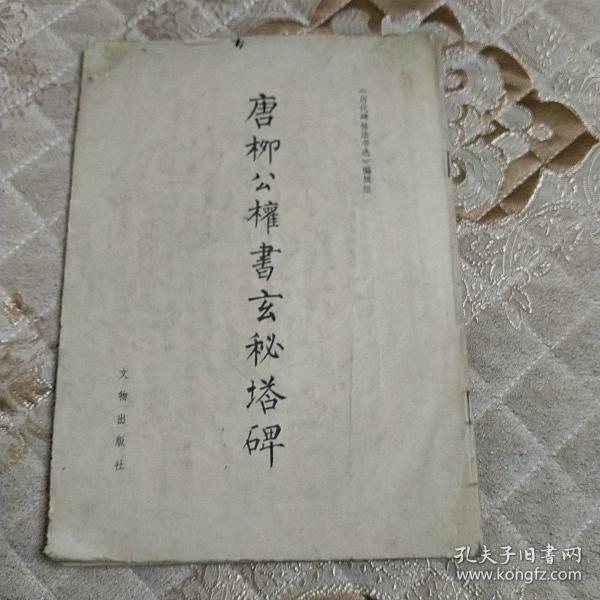 《历代碑帖法书选》编辑组
唐柳公權書玄秘塔碑
文物出版社
孔夫子旧書网
www.kongfz.com